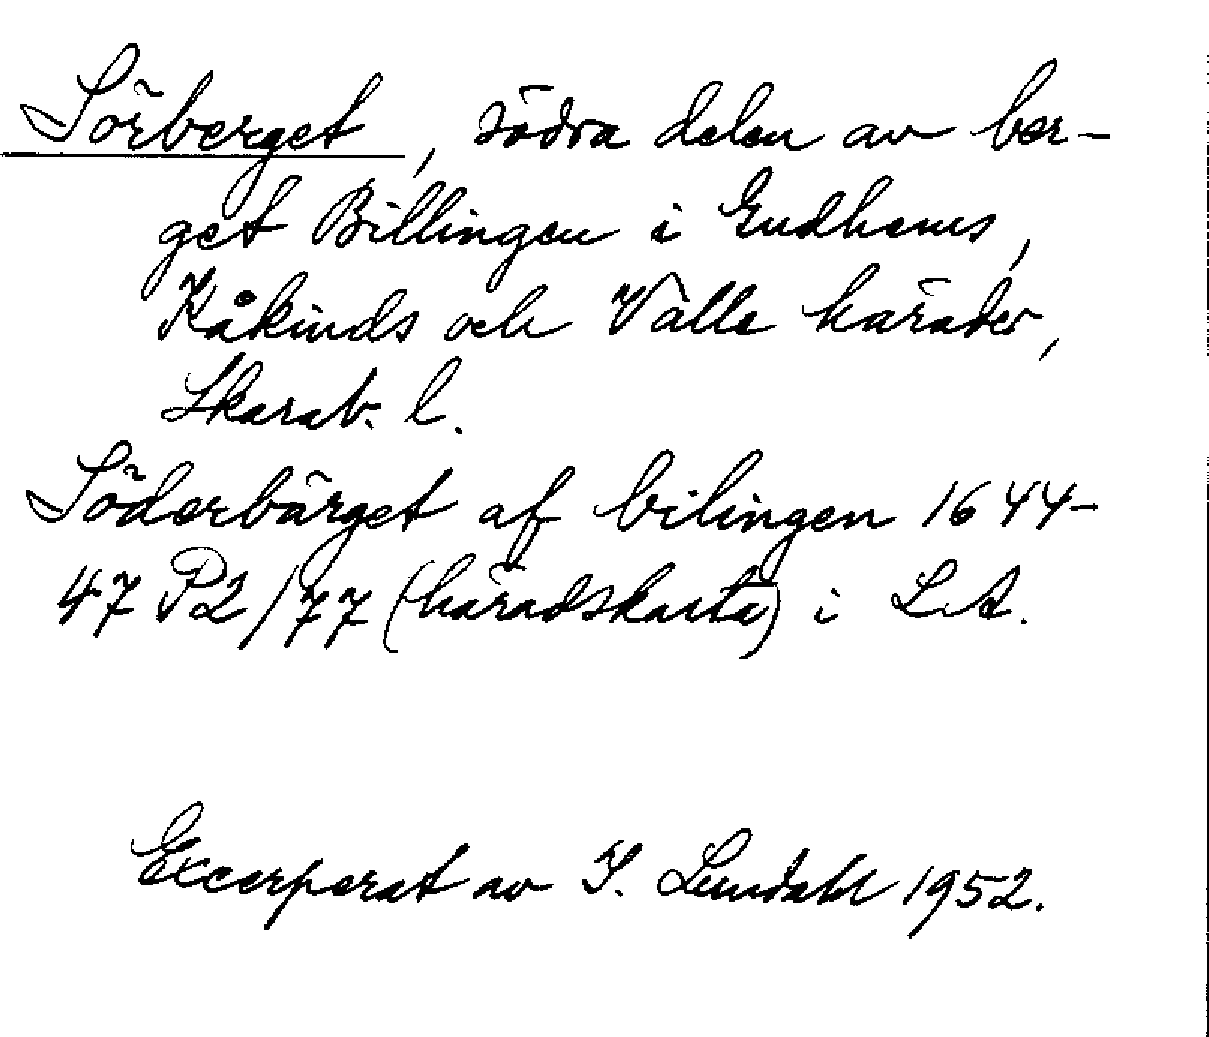 Sörberget, södra delen av ber-
get Billingen i Gudhems,
Kåkinds och Valle härader,
Skarab. l.
Söderbärget af bilingen 1644-
47 P2/77 (häradskarta) i L.A.
Excerperat av I. Lundahl 1952.